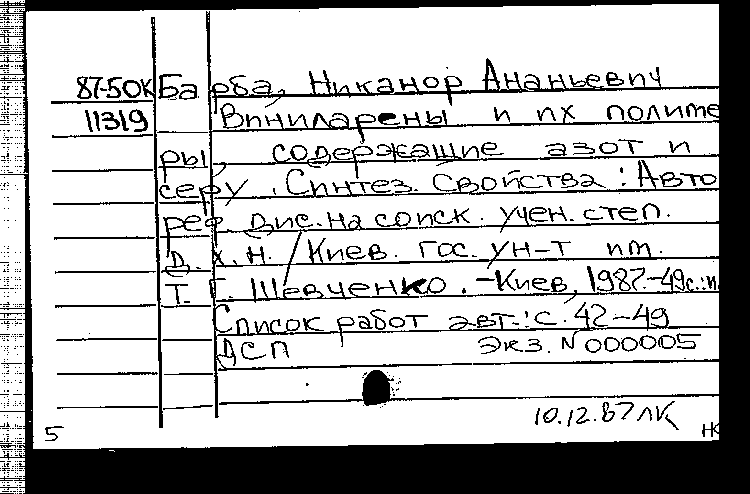 87-5ОК Барба, Никанор Ананьевич
11319 Виниларены и их полиме
ры, содержащие азот и
серу. Синтез. Свойства: Авто
реф. дис. на соиск. учен. степ.
д.х.н. / Киев. гос. ун-т им.
Т. Г. Шевченко. -Киев, 1987.-49с.:и
Список работ авт.: с. 42-49
ДСП Экз. N 000005
10.12.87 ЛК
5 НК